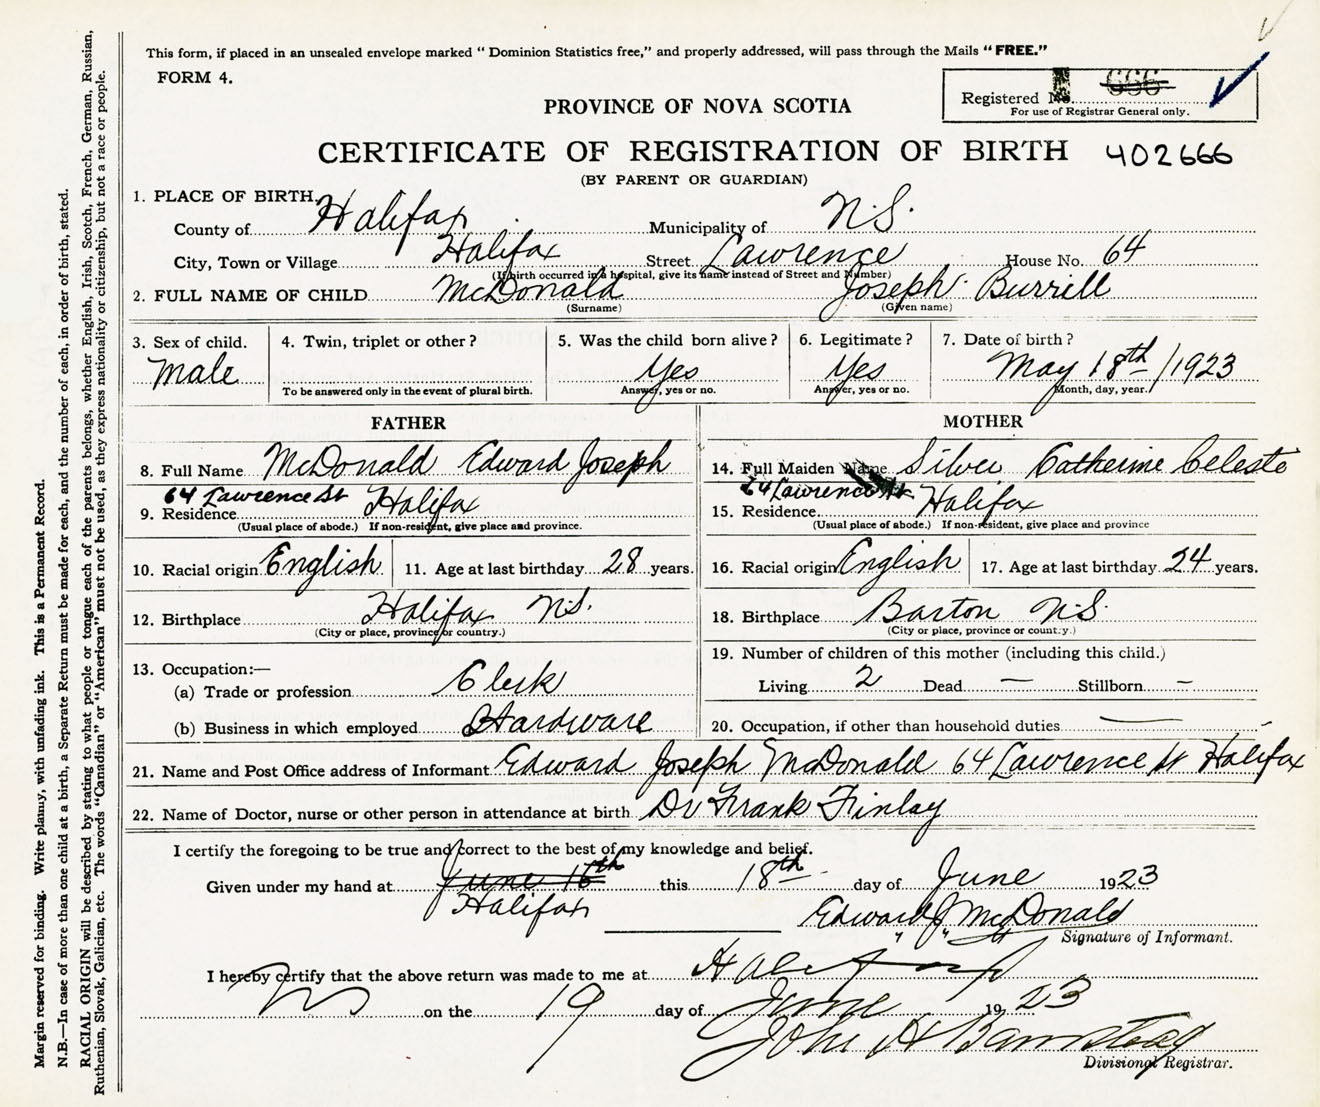 This form, if placed in an unsealed envelope marked “ Dominion Statistics free,” and properly addressed, will pass through the Mails “ FREE.”
FORM 4.
Registered No. 666
For use of Registrar General only.
PROVINCE OF NOVA SCOTIA
CERTIFICATE OF REGISTRATION OF BIRTH 402666
(BY PARENT OR GUARDIAN)
1. PLACE OF BIRTH,
County of Halifax Municipality of N.S.
City, Town or Village Halifax Street Lawrence House No. 64
(If birth occurred in a hospital, give its name instead of Street and Number)
2. FULL NAME OF CHILD McDonald Joseph Burrill
(Surname) (Given name)
3. Sex of child. 4. Twin, triplet or other ? 5. Was the child born alive ? 6. Legitimate ? 7. Date of birth ?
Male Yes Yes May 18th /1923
To be answered only in the event of plural birth. Answer, yes or no. Answer, yes or no. Month, day, year.
FATHER MOTHER
8. Full Name McDonald Edward Joseph 14. Full Maiden Name Silver Catherine Celeste
64 Lawrence St 64 Lawrence St
9. Residence Halifax 15. Residence. Halifax
(Usual place of abode.) If non-resident, give place and province. (Usual place of abode.) If non-resident, give place and province
10. Racial origin English 11. Age at last birthday 28 years. 16. Racial origin English 17. Age at last birthday 24 years.
12. Birthplace Halifax N.S. 18. Birthplace Barton N.S.
(City or place, province or country.) (City or place, province or country.)
13. Occupation:— 19. Number of children of this mother (including this child.)
(a) Trade or profession Clerk Living 2 Dead — Stillborn –
(b) Business in which employed Hardware 20. Occupation, if other than household duties —
21. Name and Post Office address of Informant Edward Joseph McDonald 64 Lawrence St Halifax
22. Name of Doctor, nurse or other person in attendance at birth Dr Frank Finlay
I certify the foregoing to be true and correct to the best of my knowledge and belief.
Given under my hand at June 18th this 18th day of June 1923
Halifax Edward J McDonald
Signature of Informant.
I hereby certify that the above return was made to me at Halifax
NS on the 19 day of June 1923
John H Barnstead
Divisional Registrar.
Margin reserved for binding. Write plainly, with unfading ink. This is a Permanent Record.
N.B.—In case of more than one child at a birth, a Separate Return must be made for each, and the number of each, in order of birth, stated.
RACIAL ORIGIN will be described by stating to what people or tongue each of the parents belongs, whether English, Irish, Scotch, French, German, Russian,
Ruthenian, Slovak, Galician, etc. The words “Canadian” or “American” must not be used, as they express nationality or citizenship, but not a race or people.